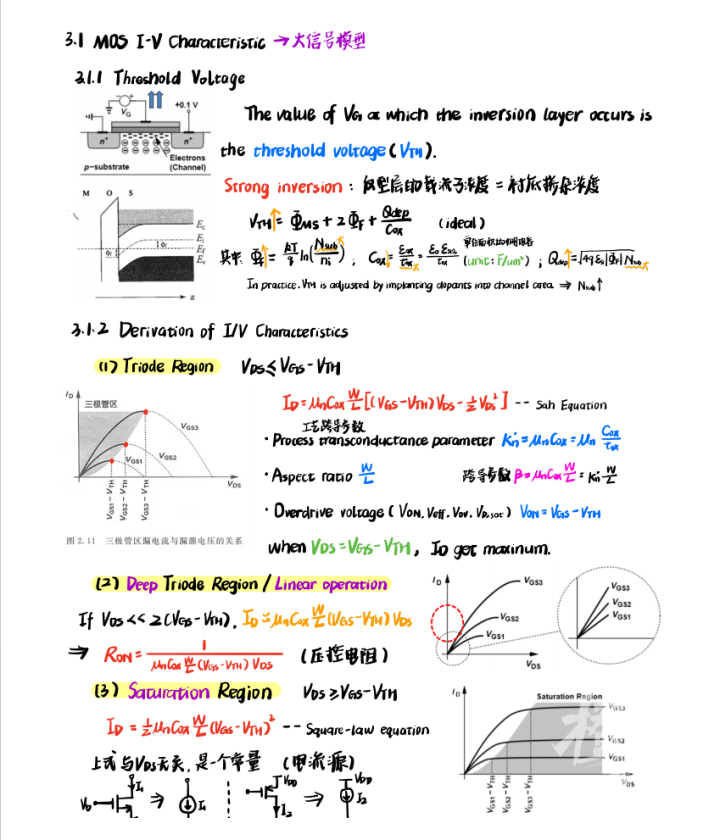 3.1 MOS I-V Characteristic → 大信号模型
3.1.1 Threshold Voltage
V_G
+0.1 V
n⁺
n⁺
Electrons
(Channel)
p-substrate
The value of V_G at which the inversion layer occurs is
the threshold voltage (V_TH).
Strong inversion : 反型层的载流子浓度 = 衬底掺杂浓度
M O S
E_c
E_i
E_f
E_v
z
V_TH = Φ_MS + 2Φ_F + Q_dep/C_ox (ideal)
其中: Φ_F = kT/q ln(N_sub/n_i) ; C_ox = ε_ox/t_ox = (unit: F/um²) ; Q_dep = √4qε_si|Φ_F|N_sub
In practice, V_TH is adjusted by implanting dopants into channel area ⇒ N_sub↑
3.1.2 Derivation of I/V Characteristics
(1) Triode Region V_DS ≤ V_GS - V_TH
I_D
三极管区
V_GS3
V_GS2
V_GS1
V_DS
V_GS1 - V_TH
V_GS2 - V_TH
V_GS3 - V_TH
图 2.11 三极管区漏电流与漏源电压的关系
I_D = μnCox W/L [(V_GS - V_TH)V_DS - ½V_DS²] -- Sah Equation
工艺跨导参数
· Process transconductance parameter Kn' = μnCox = μn Cox/tox
· Aspect ratio W/L 跨导参数 β = μnCox W/L = Kn' W/L
· Overdrive voltage (V_ON, V_eff, V_ov, V_D,sat) V_ON = V_GS - V_TH
when V_DS = V_GS - V_TH, I_D get maxinum.
(2) Deep Triode Region / Linear operation
If V_DS << 2(V_GS - V_TH), I_D ≈ μnCox W/L (V_GS - V_TH) V_DS
⇒ R_ON = 1/(μnCox W/L (V_GS - V_TH) V_DS) (压控电阻)
I_D
V_GS3
V_GS2
V_GS1
V_DS
V_GS3
V_GS2
V_GS1
(3) Saturation Region V_DS ≥ V_GS - V_TH
I_D = ½μnCox W/L (V_GS - V_TH)² -- Square-law equation
上式与V_DS无关,是一个常量 (电流源)
V_b I_1 ⇒ I_1 V_DD I_2 ⇒ V_DD I_2
I_D
Saturation Region
V_GS3
V_GS2
V_GS1
V_DS
V_GS1 - V_TH
V_GS2 - V_TH
V_GS3 - V_TH